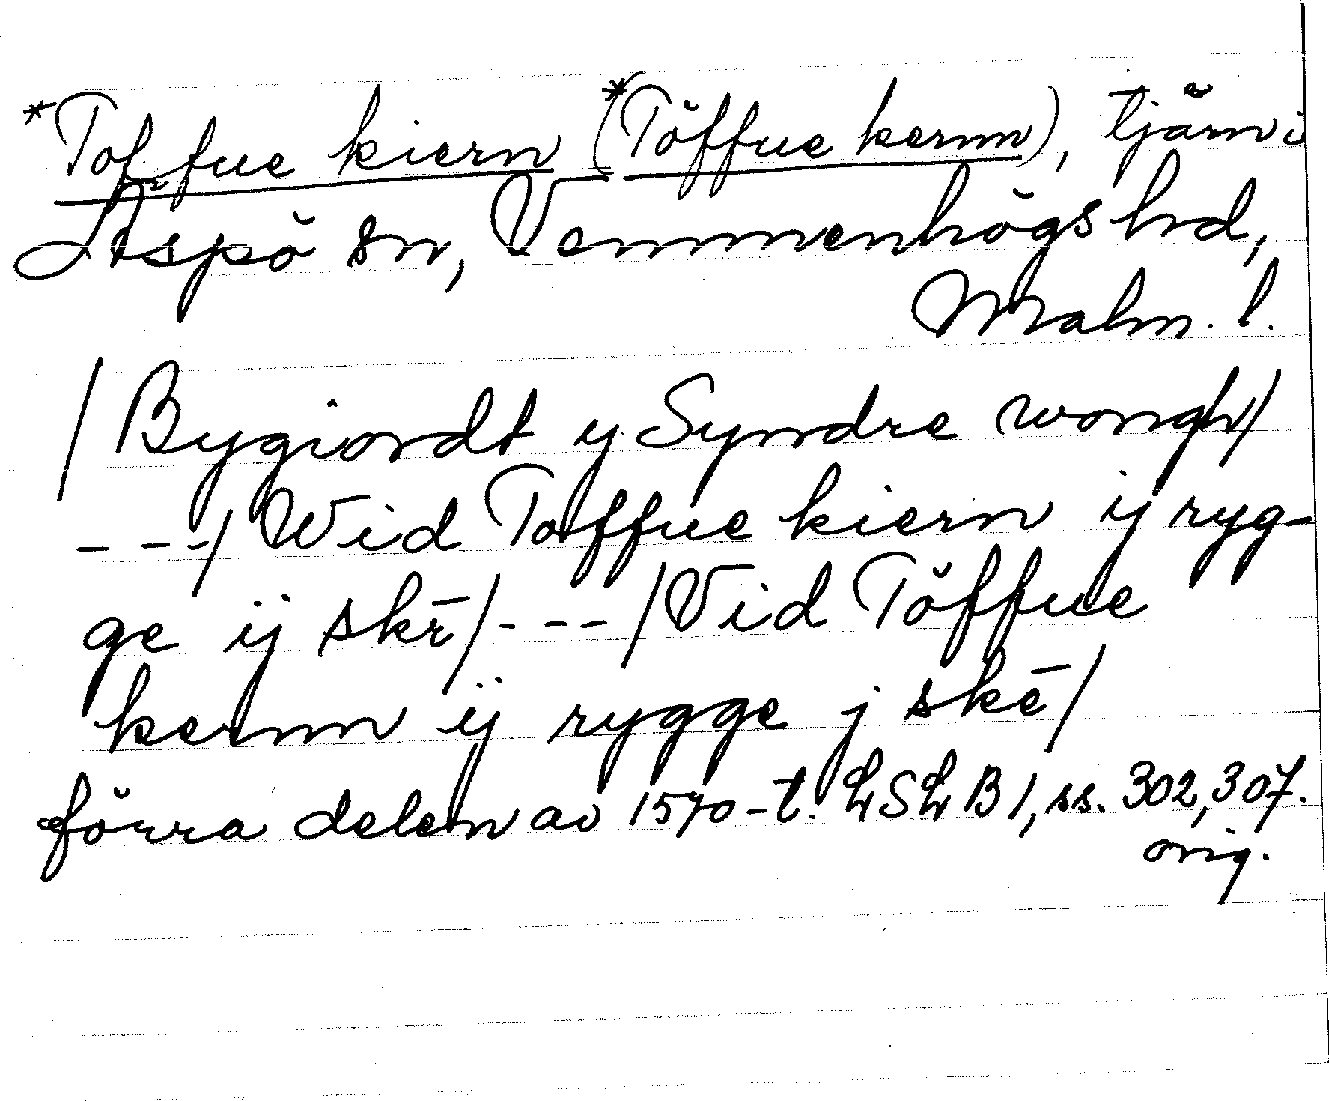 *Toffue kiern (*Töffue kernn), tjärn i
Äspö sn, Vemmenhögs hd,
Malm. l.
/Bygiordt y Syndre wongh/
---/Wid Toffue kiern ij ryg-
ge ij skē/---/Vid Töffue
kernn ij rygge j skē/
förra delen av 1570-t. LSLB 1, ss. 302, 307.
orig.